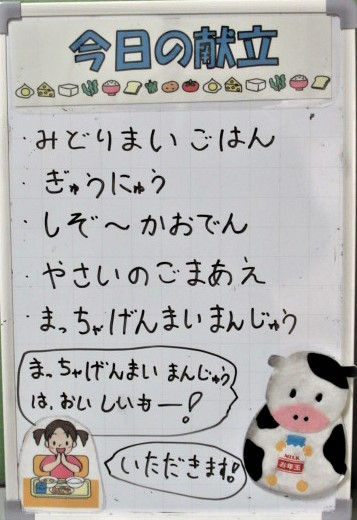 今日の献立
・みどりまい ごはん
・ぎゅうにゅう
・しぞ〜かおでん
・やさいのごまあえ
・まっちゃげんまいまんじゅう
まっちゃげんまい まんじゅう
は、おいしいもー!
いただきます!
MILK
お年玉